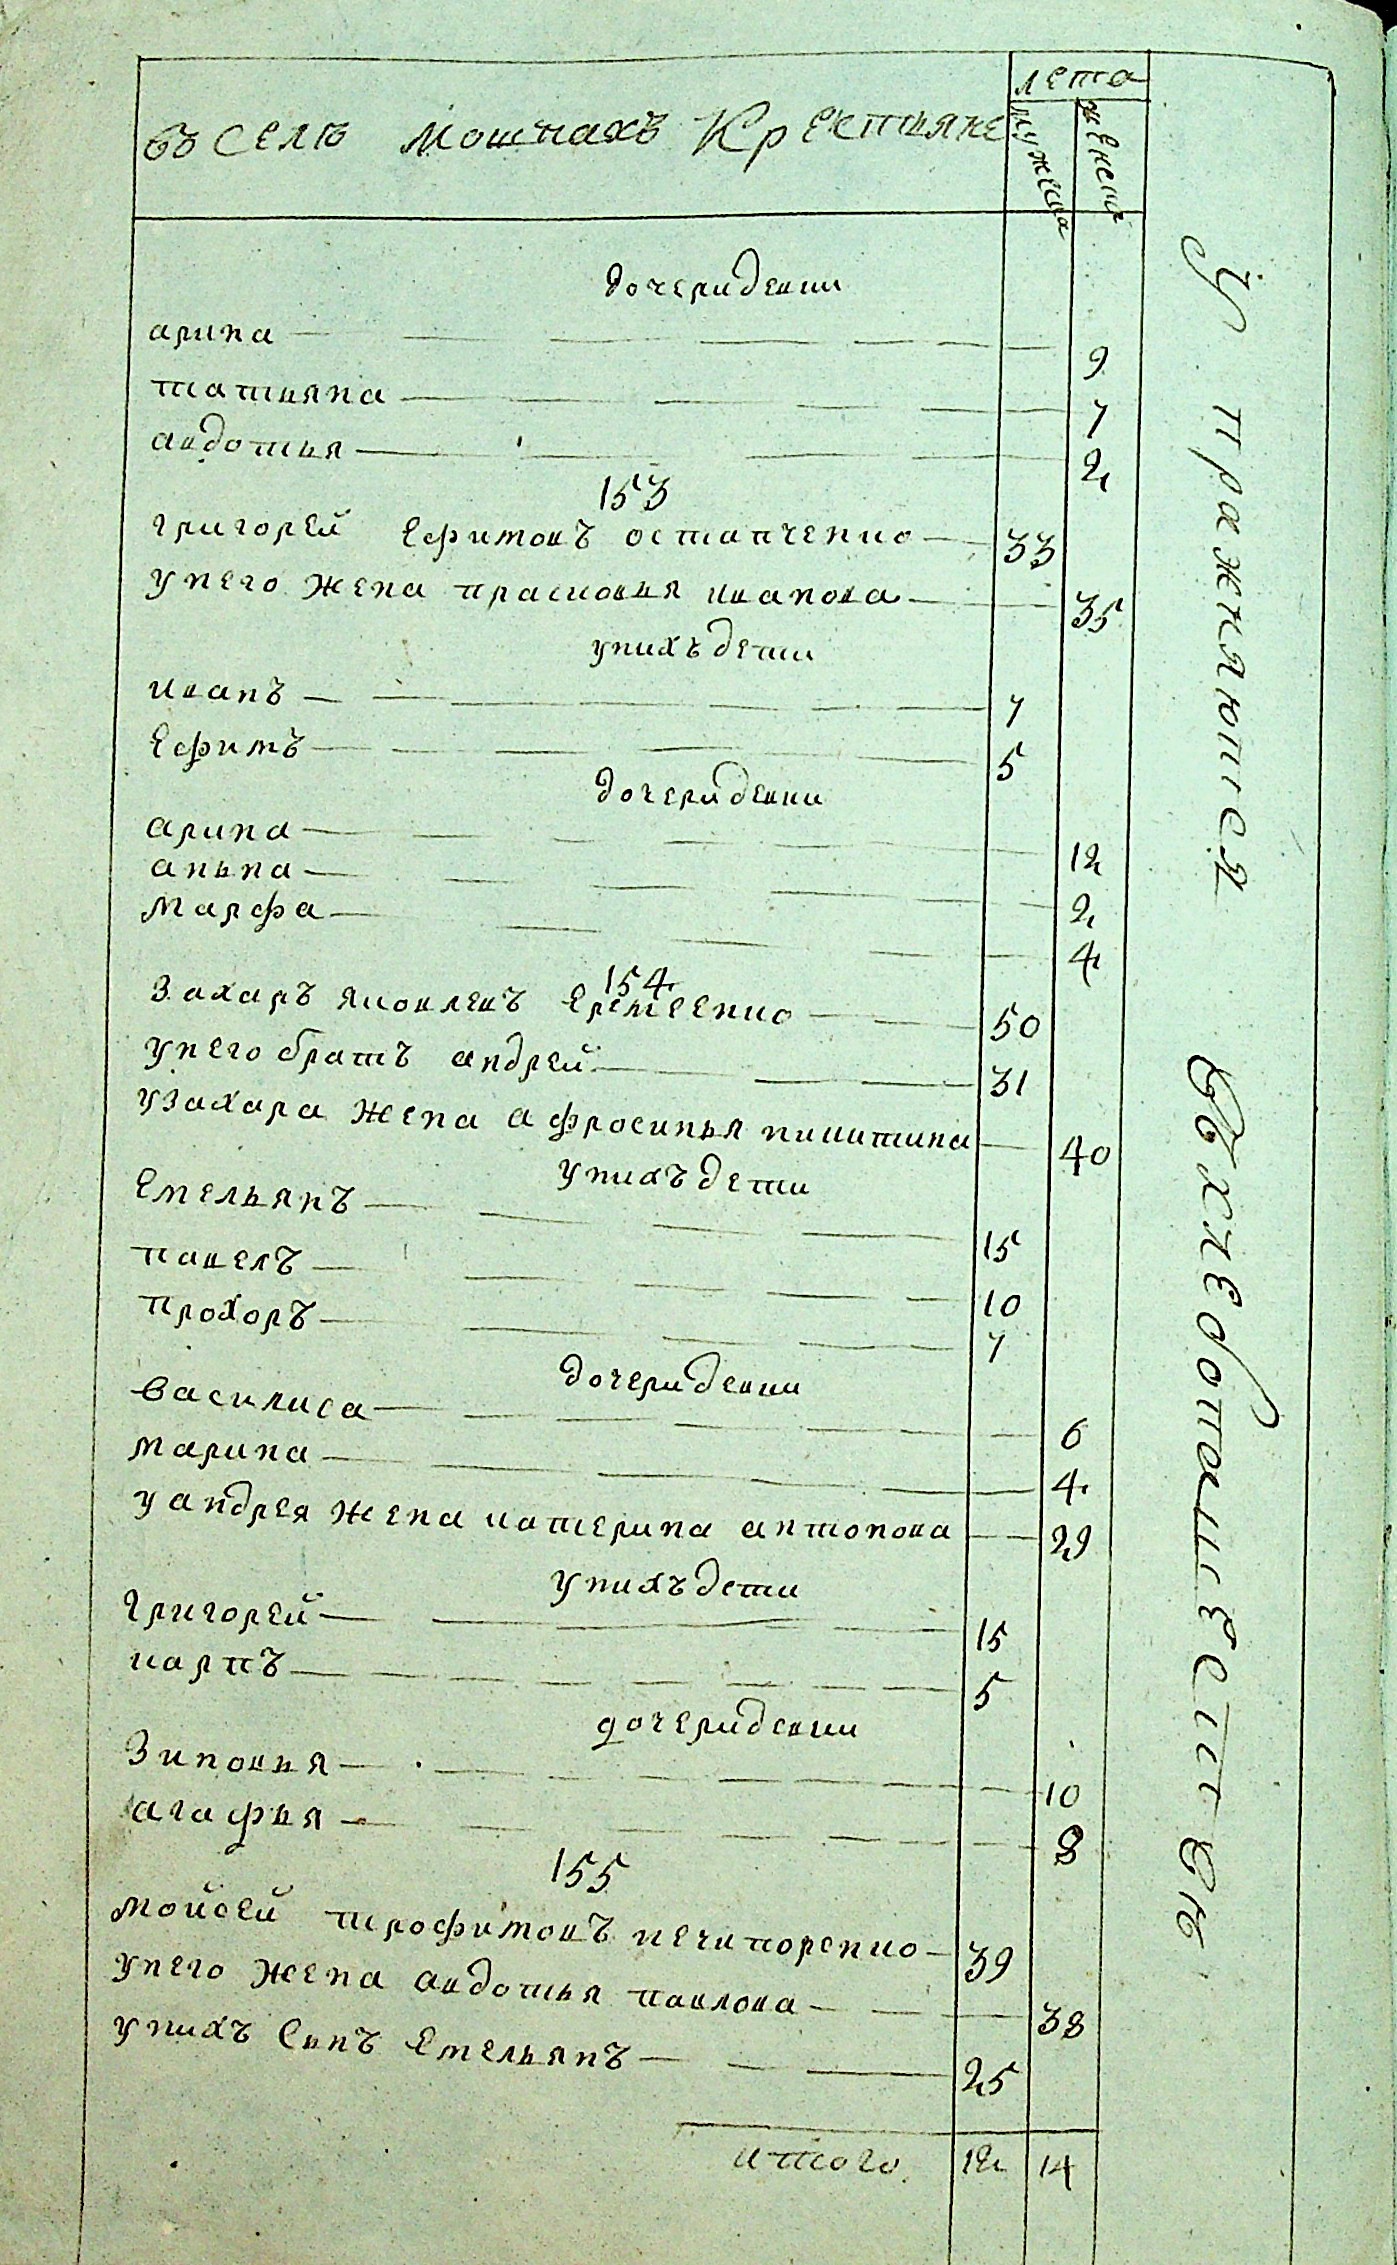 въ селѣ мошнахъ Крестьяне
лета
мужска
женска
дочеридевки
арина 9
татьяна 7
авдотья 2
153
григорей ефимовъ остапченко 33
унего жена прасковья иванова 35
унихъ дети
иванъ 7
ефимъ 5
дочеридевки
арина 12
аньна 2
марфа 4
154
захаръ яковлевъ еремеенко 50
унего братъ андрей 31
узахара жена афросинья никитина 40
унихъ дети
емельянъ 15
павелъ 10
прохоръ 7
дочеридевки
василиса 6
марина 4
уандрея жена катерина антонова 29
унихъ дети
григорей 15
карпъ 5
дочеридевки
зиновья 10
агафья 8
155
мойсей трофимовъ нечипоренко 39
унего жена авдотья павлова 38
унихъ сынъ емельянъ 25
итого 12 14
Упражняются въхлебопашестве